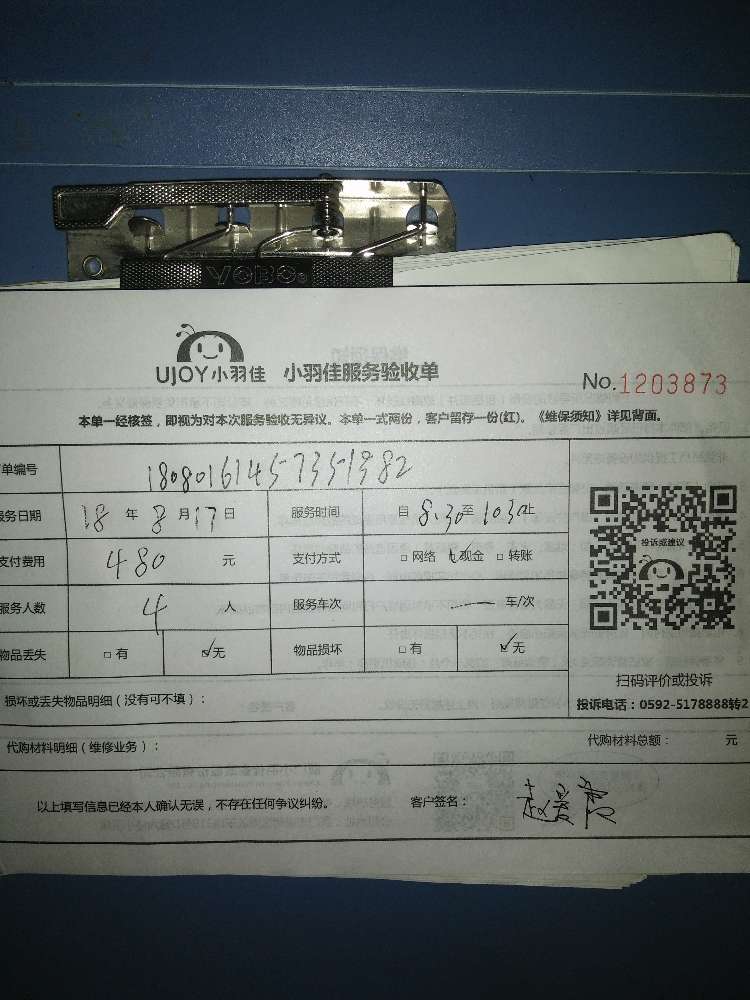 VOBO
UJOY小羽佳 小羽佳服务验收单
No.1203873
本单一经核签，即视为对本次服务验收无异议。本单一式两份，客户留存一份(红)。《维保须知》详见背面。
单编号 18080161457351982
服务日期 18 年 8 月 17 日 服务时间 自 8.30 至 1030 止
支付费用 480 元 支付方式 □网络 ☑现金 □转账
服务人数 4 人 服务车次 一 车/次
物品丢失 □有 ☑无 物品损坏 □有 ☑无
投诉或建议
扫码评价或投诉
投诉电话：0592-5178888转2
损坏或丢失物品明细（没有可不填）：
代购材料明细（维修业务）： 代购材料总额： 元
以上填写信息已经本人确认无误，不存在任何争议纠纷。 客户签名：